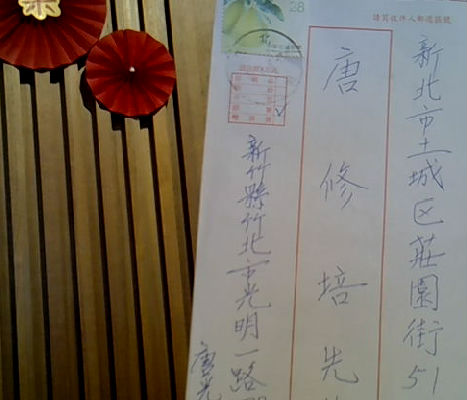 28
請寫收件人郵遞區號
新北市土城区莊園街51
唐修培先
新竹縣竹北市光明一路
唐光